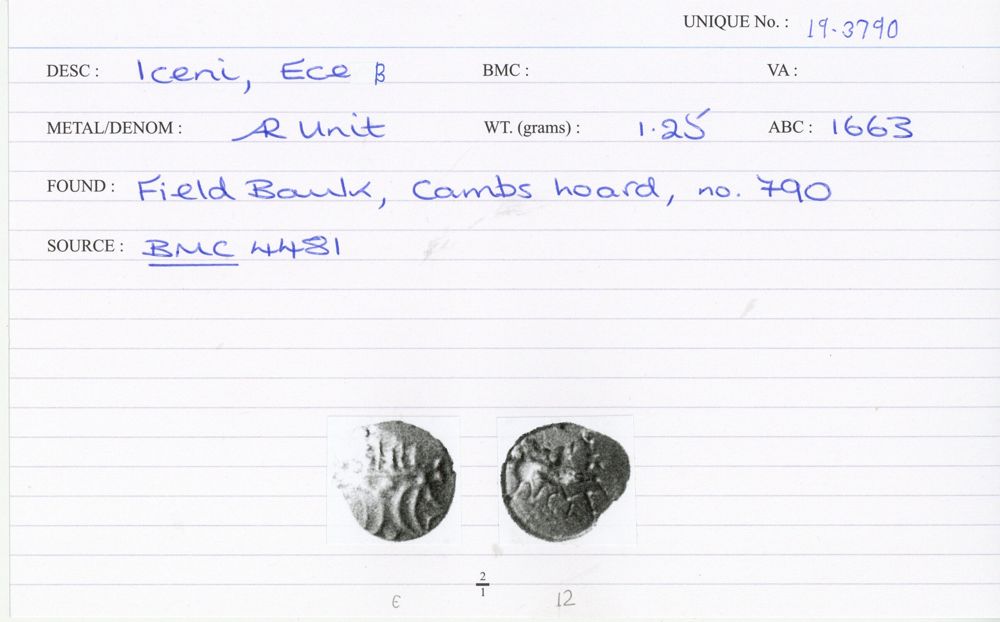 UNIQUE No. : 19.3790
DESC : Iceni, Ece β BMC : VA :
METAL/DENOM : AR Unit WT. (grams) : 1.25 ABC : 1663
FOUND : Field Bawk, Cambs hoard, no. 790
SOURCE : BMC 4481
2
1
є 12